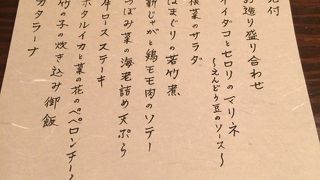 先付
お造り盛り合わせ
イイダコとセロリのマリネ
〜えんどう豆のソース〜
根菜のサラダ
はまぐりの若竹煮
新じゃがと鶏モモ肉のソテー
つぼみ菜の海老詰め天ぷら
牛ロースステーキ
ホタルイカと菜の花のペペロンチーノ
竹の子の炊き込み御飯
カタラーナ